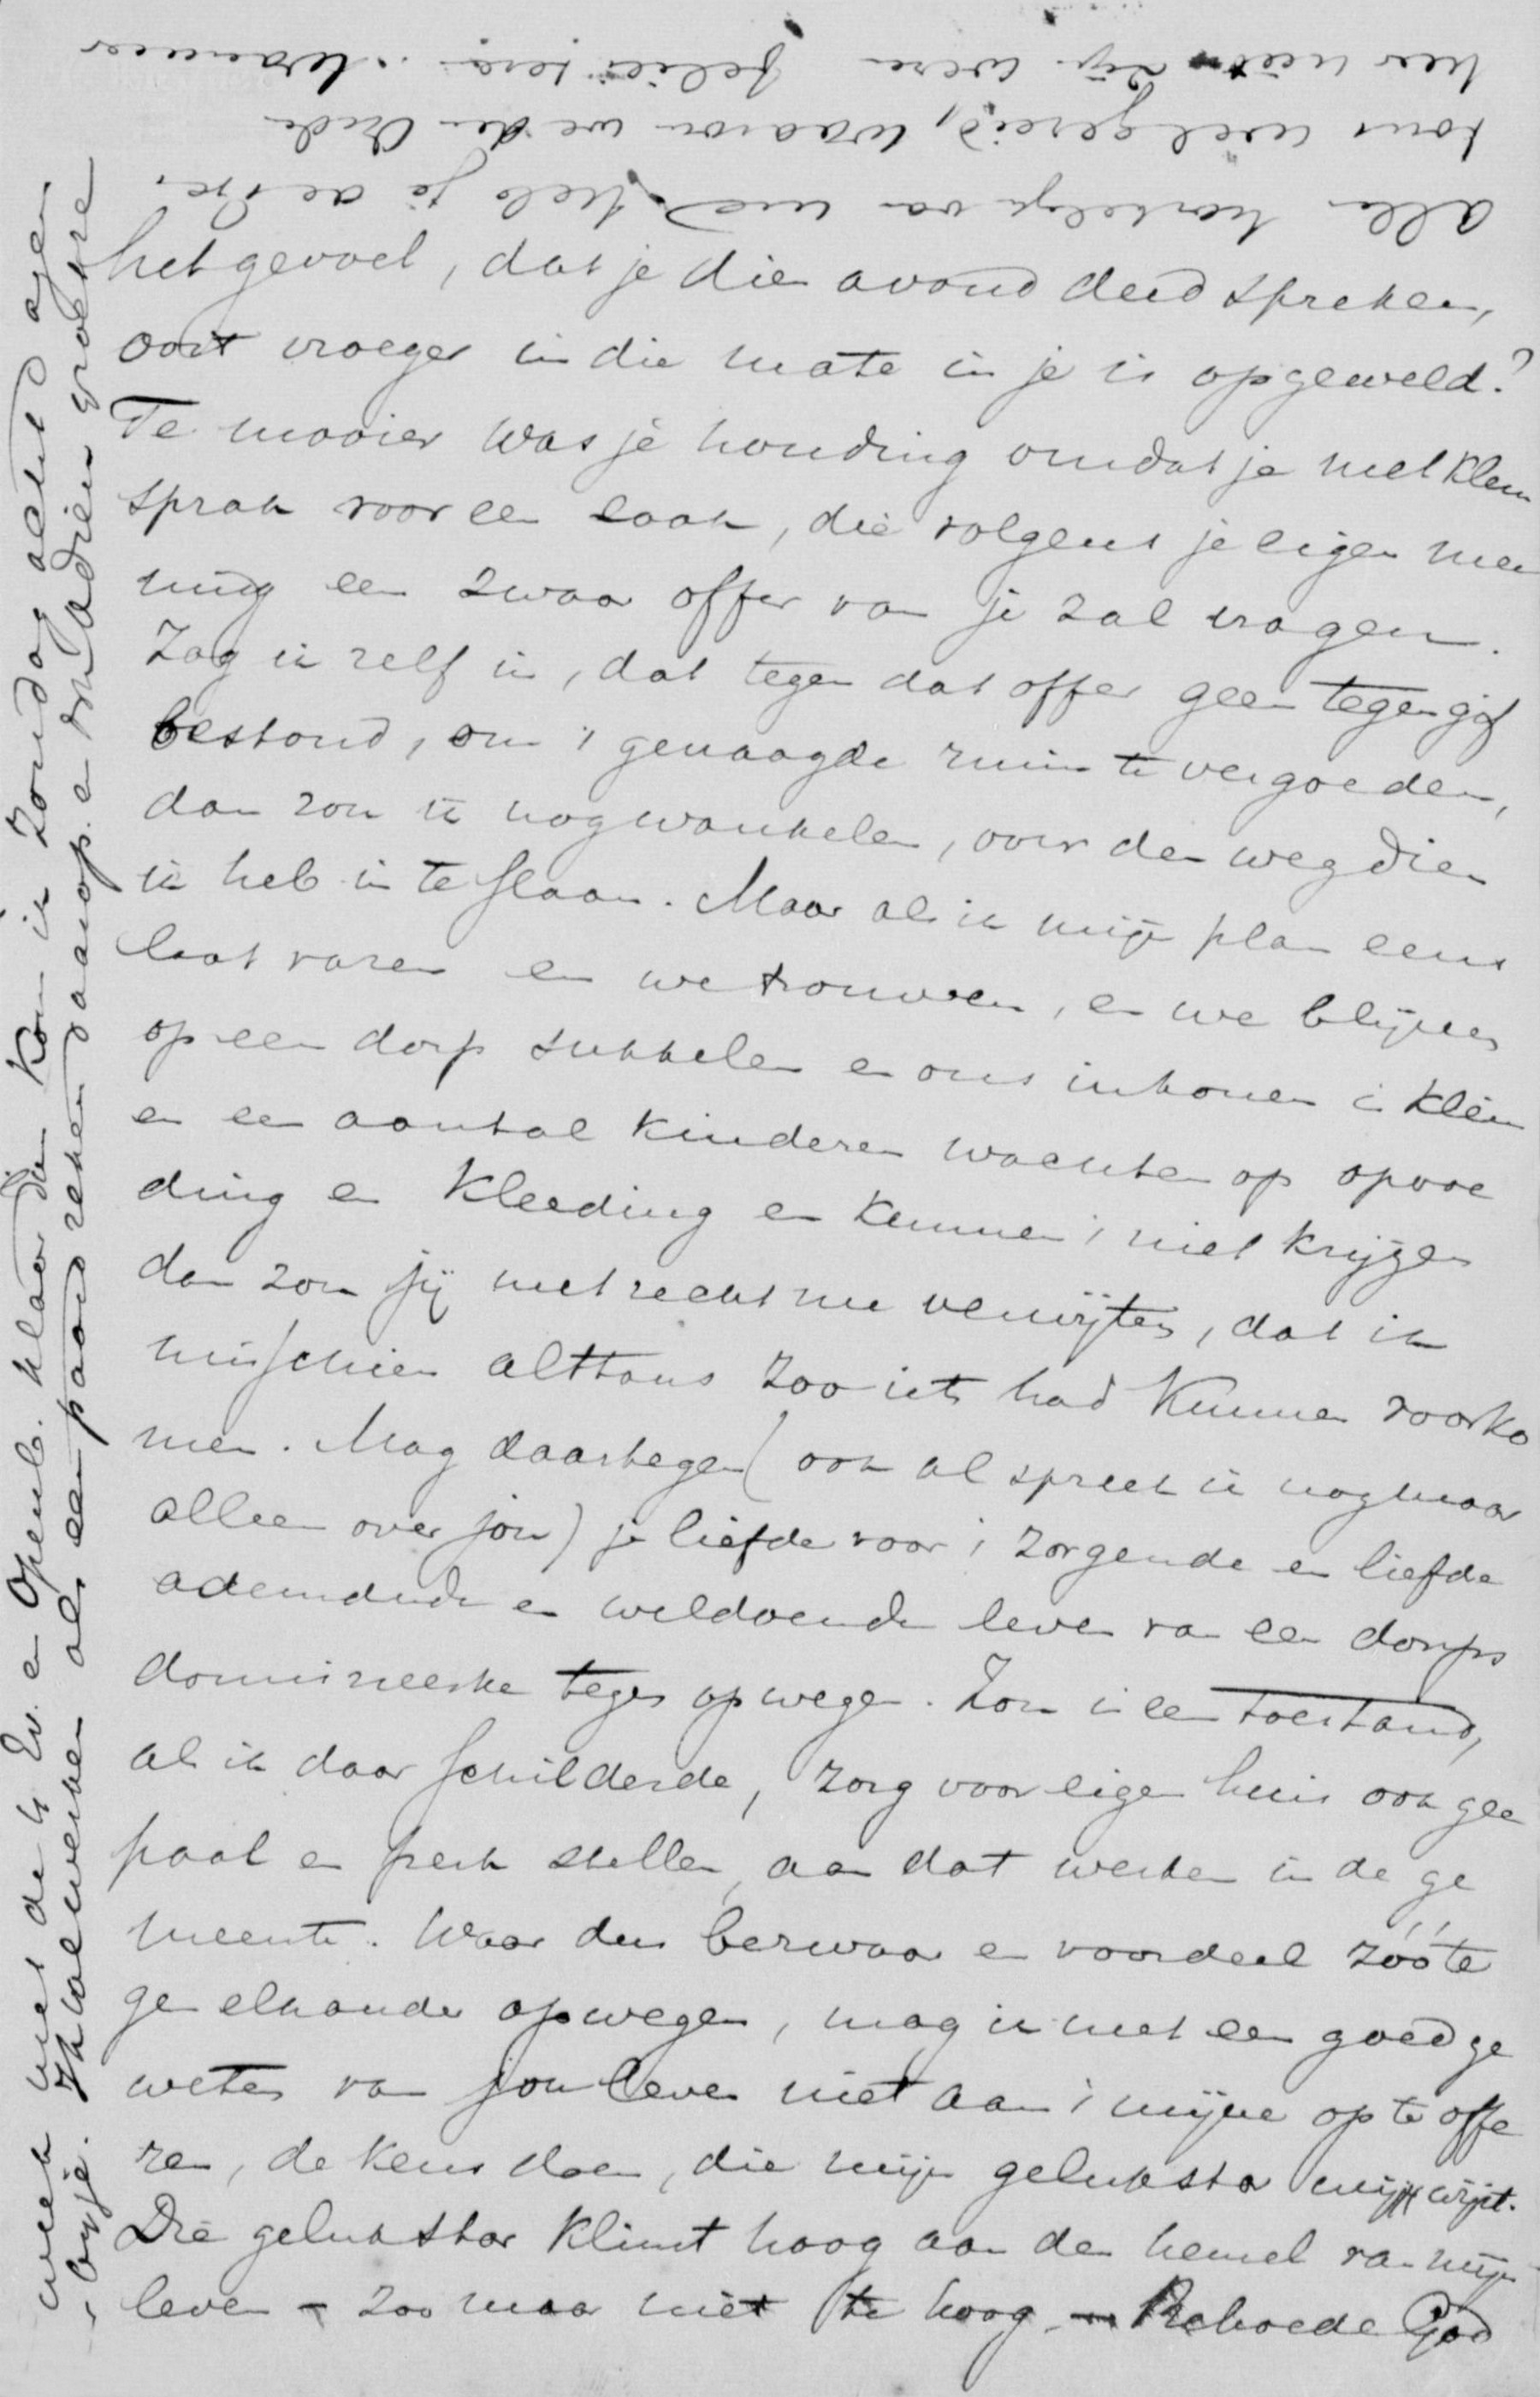 het gevoel, dat je dien avond deed spreken,
ooit vroeger in die mate in je is opgeweld?
Te mooier was je houding omdat je met klem
sprak voor een zaak, die volgens je eigen mee
ning een zwaar offer van je zal vragen.
Zag ik zelf in, dat tegen dat offer geen tegengif
bestond, om 't gevraagde ruim te vergoeden,
dan zou ik nog wankelen, over den weg dien
ik heb in te slaan. Maar als ik mijn plan eens
laat varen en we trouwen, en we blijven
op een dorp sukkelen en ons inkomen is klein
en een aantal kinderen wachten op opvoe
ding en kleeding en kunnen 't niet krijgen
dan zou jij met recht me verwijten, dat ik
misschien althans zoo iets had kunnen voorko
men. Mag daartegen (ook al spreek ik nog maar
alleen over jou) je liefde voor 't zorgende en liefde
ademende en weldoende leven van een dorps
domineeske tegen opwegen. Zou in een toestand,
als ik daar schilderde, zorg voor eigen huis ook geen
paal en perk stellen, aan dat werken in de ge
meente. Waar dus bezwaar en voordeel zóó te
gen elkander opwegen, mag ik met een goed ge
weten van jou leven niet aan 't mijne op te offe
ren, de keus doen, die mijn geluksstar mij wijst.
Die geluksstar klimt hoog aan den hemel van mijn
leven - zoo maar niet te hoog. - Behoede God
allen hartelijk van me. Heb je de
tans wel gereid, waarvan we den Ouden
heer niet zijn wezen feliciteren. Wanneer
week met de h Ev. en Openb. klaar dan kon ik Zondag altijd ogen
-logje. Ik wil werken als een paard reken daarop. en bovendien groetne